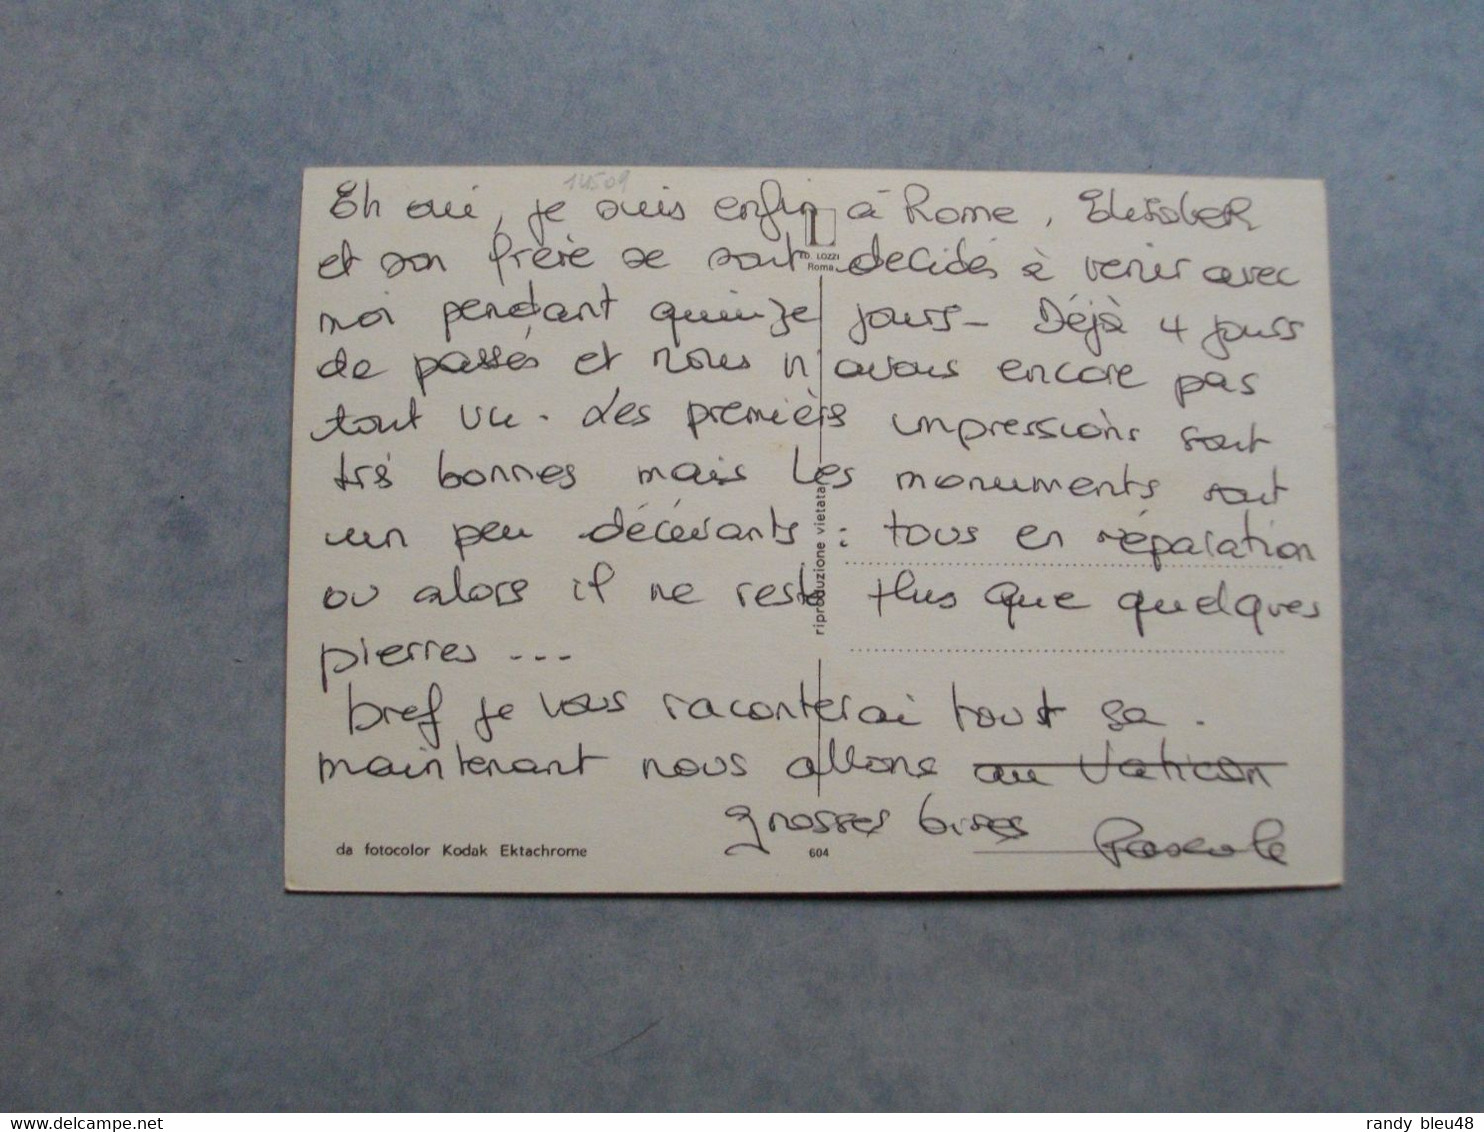 14509
Eh oui, je suis enfin à Rome, Elisabeth
L
ED. LOZZI
Roma
et son frère se sont décidés à venir avec
moi pendant quinze jours - Déjà 4 jours
de passés et nous n'avons encore pas
tout vu. Les premièrs impressions sont
très bonnes mais les monuments sont
un peu décevants : tous en réparation
ou alors il ne reste plus que quelques
pierres ...
bref je vous raconterai tout sa.
maintenant nous allons au Vatican
grosses bises Pascale
riproduzione vietata
da fotocolor Kodak Ektachrome
604
delcampe.net
randy bleu48